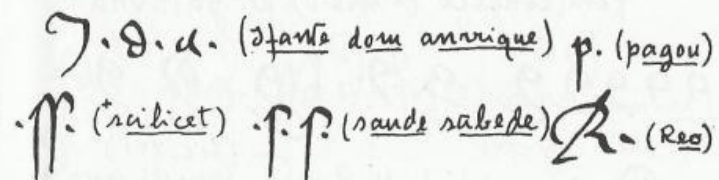 J. d. a. (Ifante dom anrrique) p. (pagou)
.ſſ. (scilicet) .ſ.ſ. (saude sabede) R. (Reo)